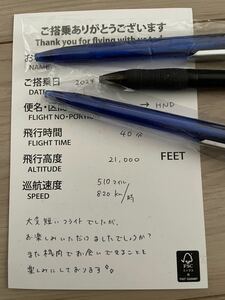 ご搭乗ありがとうございます
Thank you for flying with
お
NAME
ご搭乗日 2024
DATE
便名・区間 → HND
FLIGHT NO・PORTION
飛行時間 40分
FLIGHT TIME
飛行高度 21,000
ALTITUDE FEET
巡航速度 510マイル
SPEED 820km/時
大変短いフライトでしたが、
お楽しみいただけましたでしょうか?
また機内でお会いできることを
楽しみにしております
FSC